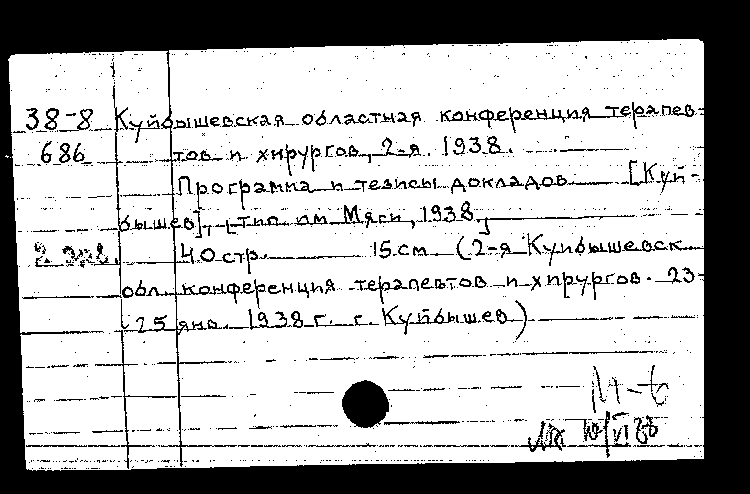 38-8 Куйбышевская областная конференция терапев-
686 тов и хирургов, 2-я. 1938.
Программа и тезисы докладов [Куй-
бышев], [тип. им. Мяги, 1938.]
2 экз. 40 стр. 15 см. (2-я Куйбышевск.
обл. конференция терапевтов и хирургов. 23-
-25 янв. 1938 г. г. Куйбышев)